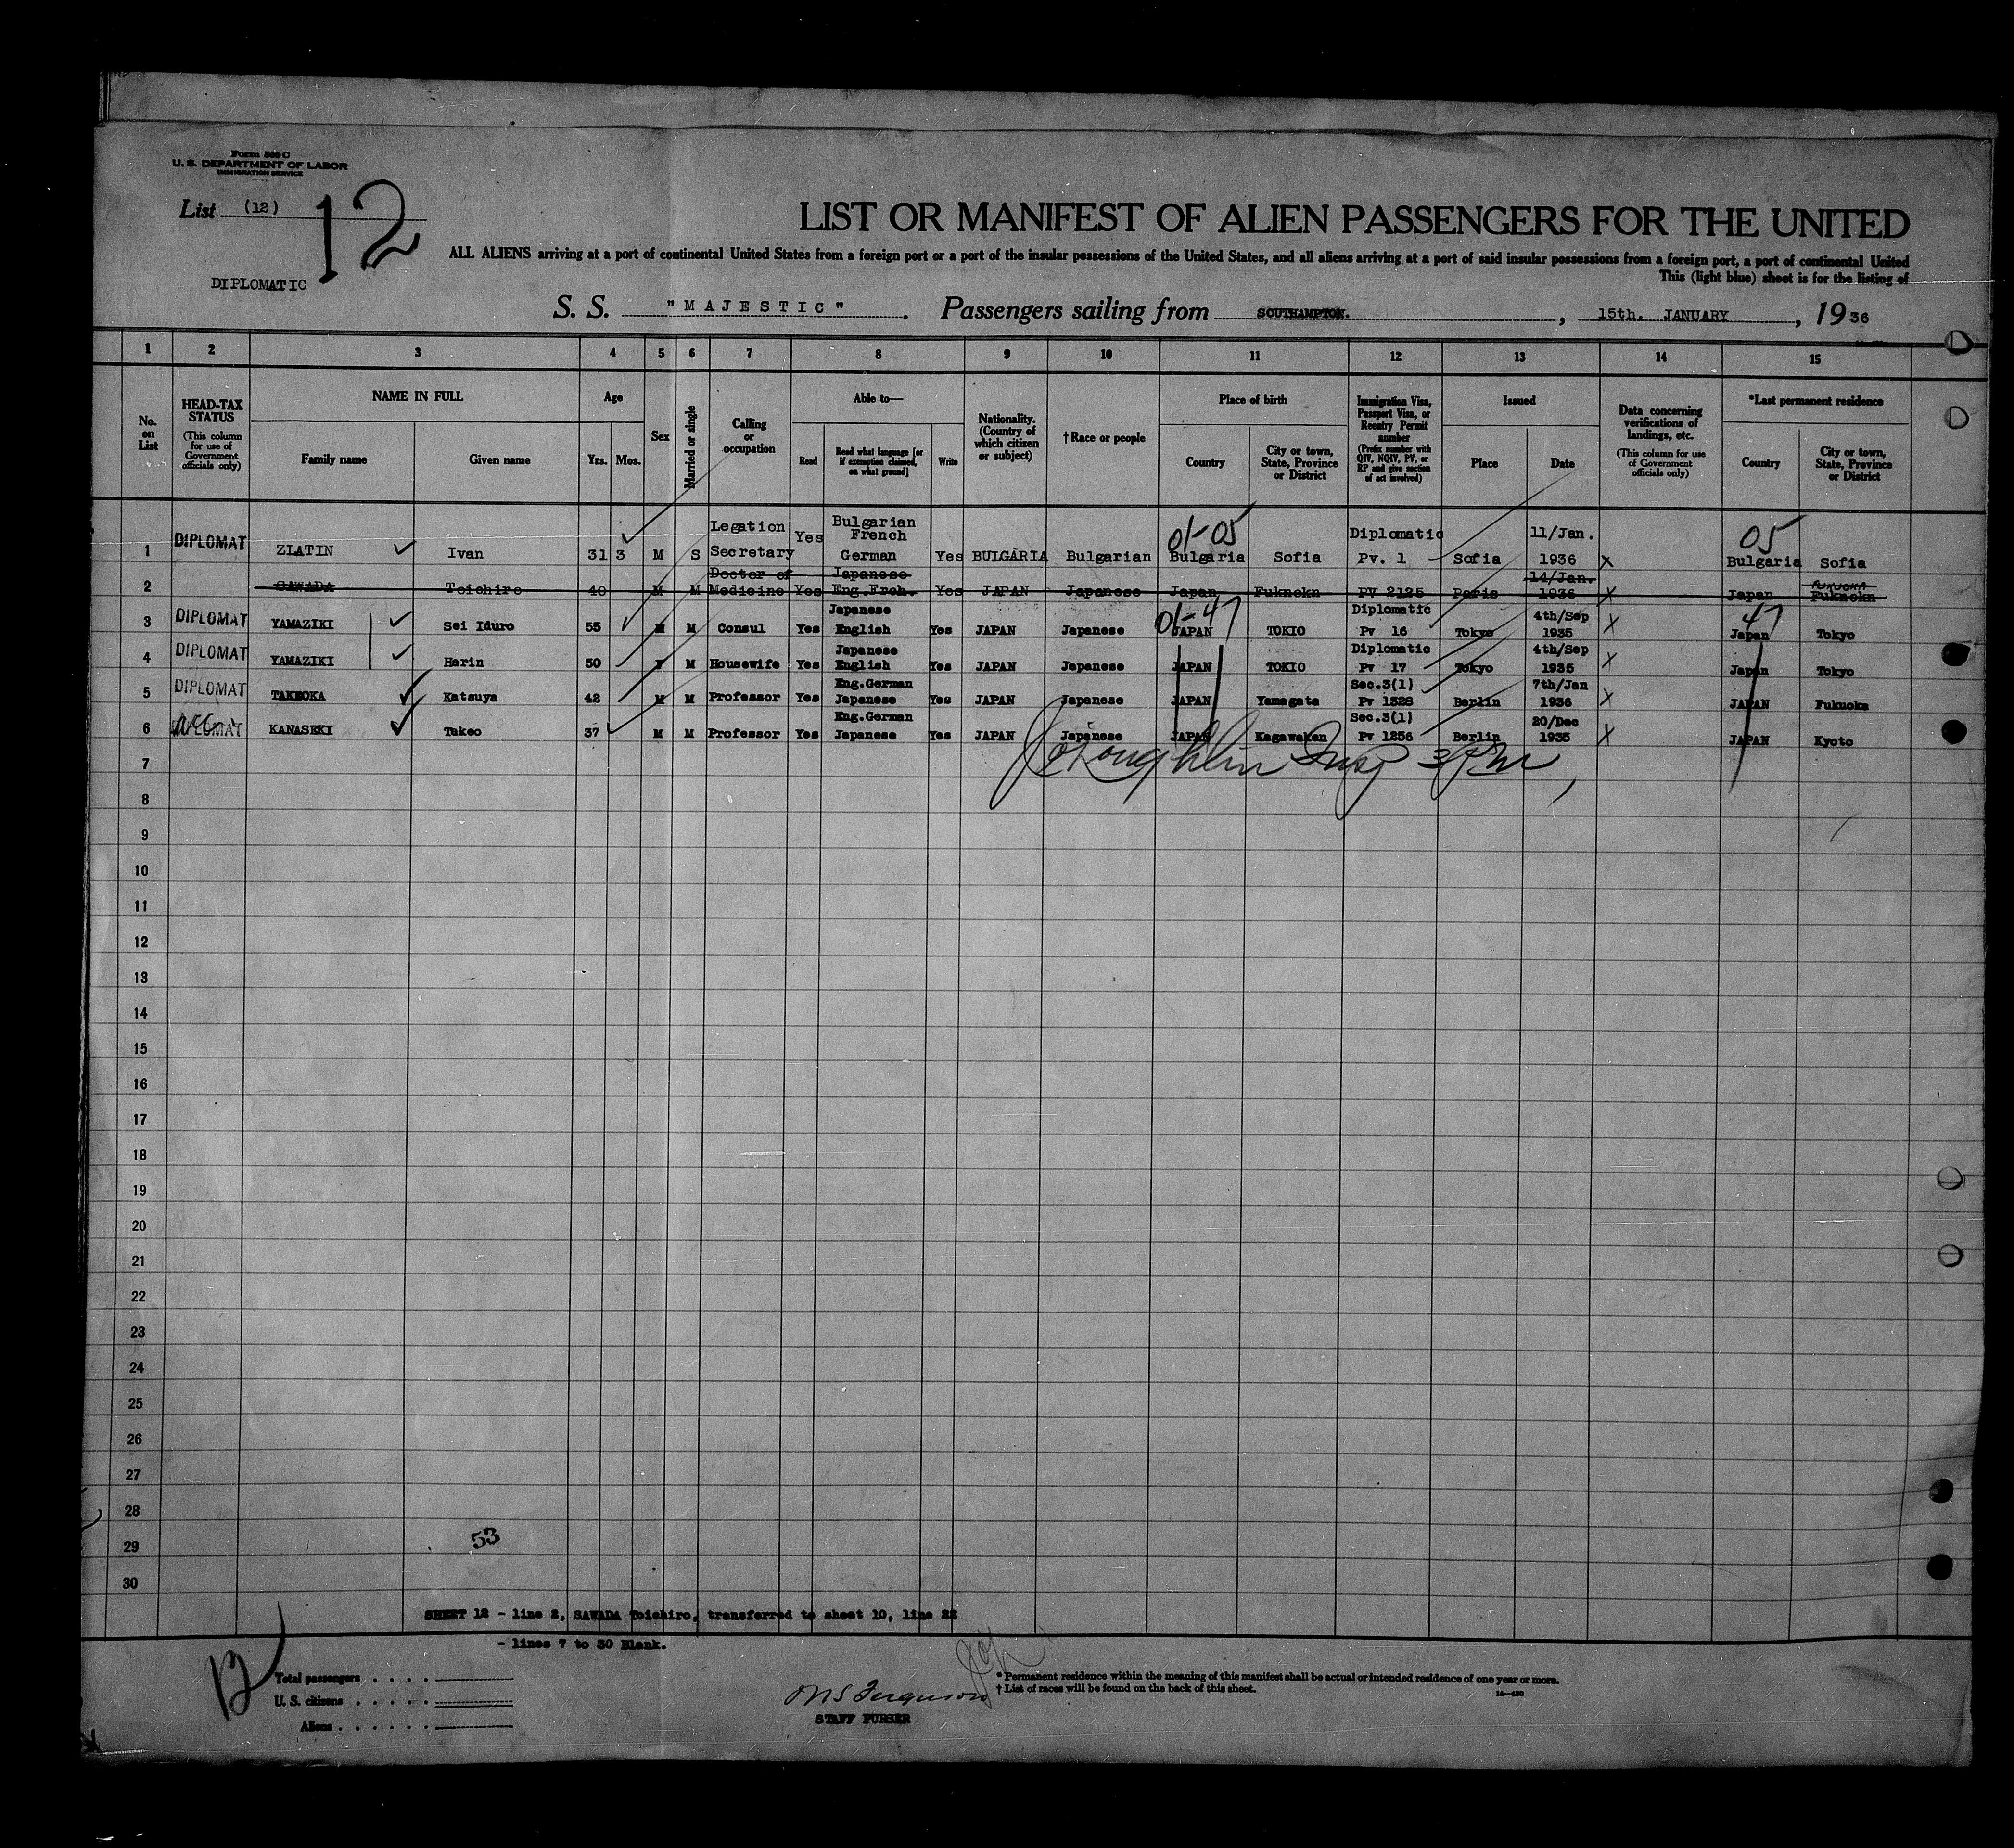 Form 500 C
U. S. DEPARTMENT OF LABOR
IMMIGRATION SERVICE
List (12) 12
LIST OR MANIFEST OF ALIEN PASSENGERS FOR THE UNITED
ALL ALIENS arriving at a port of continental United States from a foreign port or a port of the insular possessions of the United States, and all aliens arriving at a port of said insular possessions from a foreign port, a port of continental United
This (light blue) sheet is for the listing of
DIPLOMATIC
S. S. "MAJESTIC". Passengers sailing from SOUTHAMPTON. , 15th. JANUARY , 19 36
1 2 3 4 5 6 7 8 9 10 11 12 13 14 15
No. on List
HEAD-TAX STATUS (This column for use of Government officials only)
NAME IN FULL Family name Given name
Age Yrs. Mos.
Sex
Married or single
Calling or occupation
Able to— Read Read what language [or if exemption claimed, on what ground] Write
Nationality. (Country of which citizen or subject)
†Race or people
Place of birth Country City or town, State, Province or District
Immigration Visa, Passport Visa, or Reentry Permit number (Prefix number with QIV, NQIV, PV, or RP and give section of act involved)
Issued Place Date
Data concerning verifications of landings, etc. (This column for use of Government officials only)
*Last permanent residence Country City or town, State, Province or District
01-05 05
1 DIPLOMAT ZLATIN Ivan 31 3 M S Legation Secretary Yes Bulgarian French German Yes BULGARIA Bulgarian Bulgaria Sofia Diplomatic Pv. 1 Sofia 11/Jan. 1936 X Bulgaria Sofia
2 SAWADA Toichiro 40 M M Doctor of Medicine Yes Japanese Eng.Frch. Yes JAPAN Japanese Japan Fukuokn PV 2125 Paris 14/Jan. 1936 X Japan Fukuokn FUKUOKA
01-47 47
3 DIPLOMAT YAMAZIKI Sei Iduro 55 M M Consul Yes Japanese English Yes JAPAN Japanese JAPAN TOKIO Diplomatic Pv 16 Tokyo 4th/Sep 1935 X Japan Tokyo
4 DIPLOMAT YAMAZIKI Harin 50 F M Housewife Yes Japanese English Yes JAPAN Japanese JAPAN TOKIO Diplomatic Pv 17 Tokyo 4th/Sep 1935 X Japan Tokyo
5 DIPLOMAT TAKEOKA Katsuya 42 M M Professor Yes Eng.German Japanese Yes JAPAN Japanese JAPAN Yamagata Sec.3(1) Pv 1328 Berlin 7th/Jan 1936 X JAPAN Fukuoka
6 DIPLOMAT KANASEKI Takeo 37 M M Professor Yes Eng.German Japanese Yes JAPAN Japanese JAPAN Kagawaken Sec.3(1) Pv 1256 Berlin 20/Dec 1935 X JAPAN Kyoto
7
8
9
10
11
12
13
14
15
16
17
18
19
20
21
22
23
24
25
26
27
28
29
30
53
SHEET 12 - line 2, SAWADA Toichiro, transferred to sheet 10, line 22
- lines 7 to 30 Blank.
12
Total passengers . . . .
U. S. citizens . . . . .
Aliens . . . . . .
Ferguson
STAFF PURSER
* Permanent residence within the meaning of this manifest shall be actual or intended residence of one year or more.
† List of races will be found on the back of this sheet.